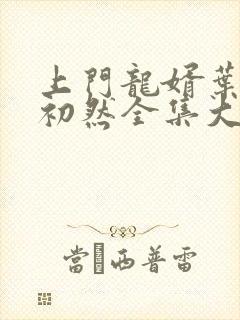 上門龍婿葉
初然全集大
當 西普雷